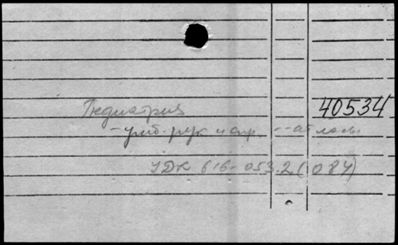 Педиатрия 40534
— учеб. рук и спр. — атласы
УДК 616-053.2(084)